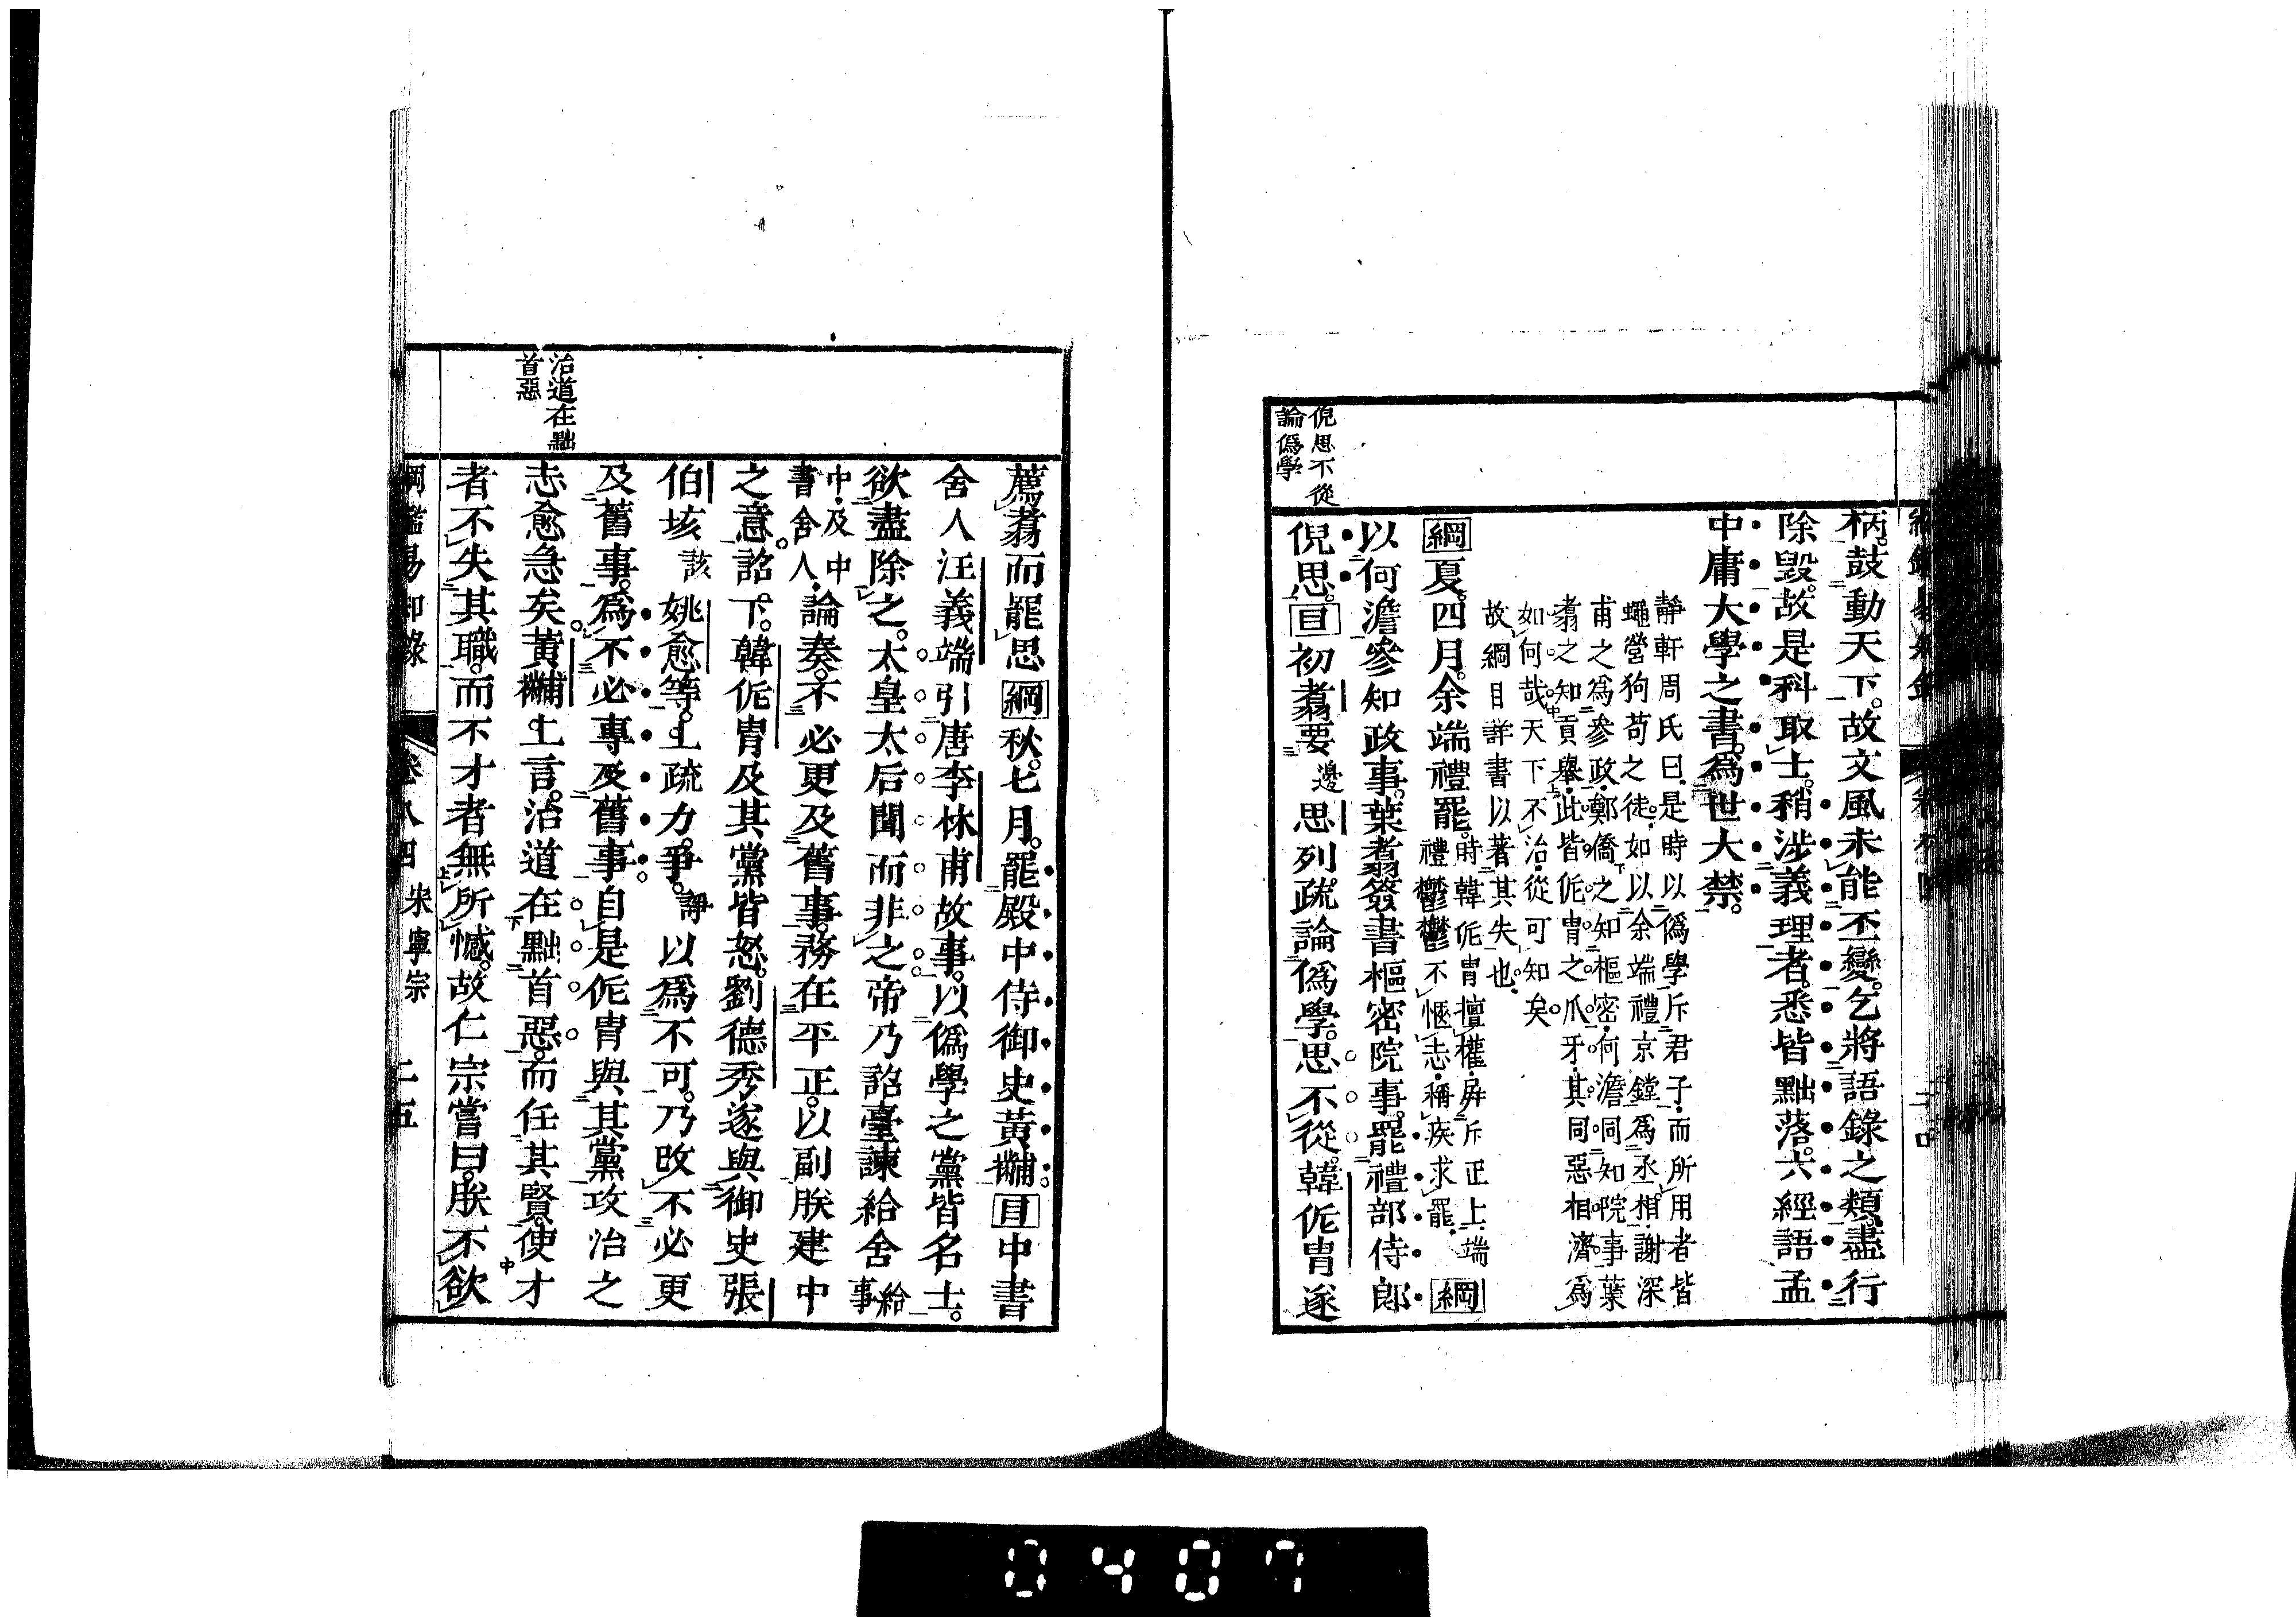 柄。鼓動天下。故文風未能丕變。乞將語錄之類。盡行
除毀。故是科取士。稍涉義理者。悉皆黜落。六經語孟
中庸大學之書。為世大禁。
靜軒周氏曰。是時以僞學斥君子。而所用者皆
蠅營狗苟之徒。如以余端禮京鏜為丞相。謝深
甫之為參政。鄭僑之知樞密。何澹同知院事。葉
翥之知貢舉。此皆侂胄之爪牙。其同惡相濟為
如何哉。天下不治。從可知矣。
故綱目詳書以著其失也。
綱夏。四月。余端禮罷。時韓侂胄擅權。屏斥正士。端
禮鬱鬱不愜志。稱疾求罷。綱
以何澹參知政事。葉翥簽書樞密院事。罷禮部侍郎
倪思。目初翥要邊思列疏。論僞學。思不從。韓侂胄遂
倪思不從
論僞學
薦翥而罷思綱秋。七月。罷殿中侍御史黃黼。目中書
舍人汪義端引唐李林甫故事。以僞學之黨皆名士。
欲盡除之。太皇太后聞而非之。帝乃詔臺諫給舍給事
中。及中
書舍人。論奏。不必更及舊事。務在平正。以副朕建中
之意。詔下。韓侂胄及其黨皆怒。劉德秀遂與御史張
伯垓該姚愈等。上疏力爭。諍以為不可。乃改不必更
及舊事。為不必專及舊事。自是侂胄與其黨攻治之
志愈急矣。黃黼上言。治道在黜首惡。而任其賢。使才
者不失其職。而不才者無所憾。故仁宗嘗曰。朕不欲
治道在黜
首惡
綱鑑易知錄
卷八四
宋寧宗
二五